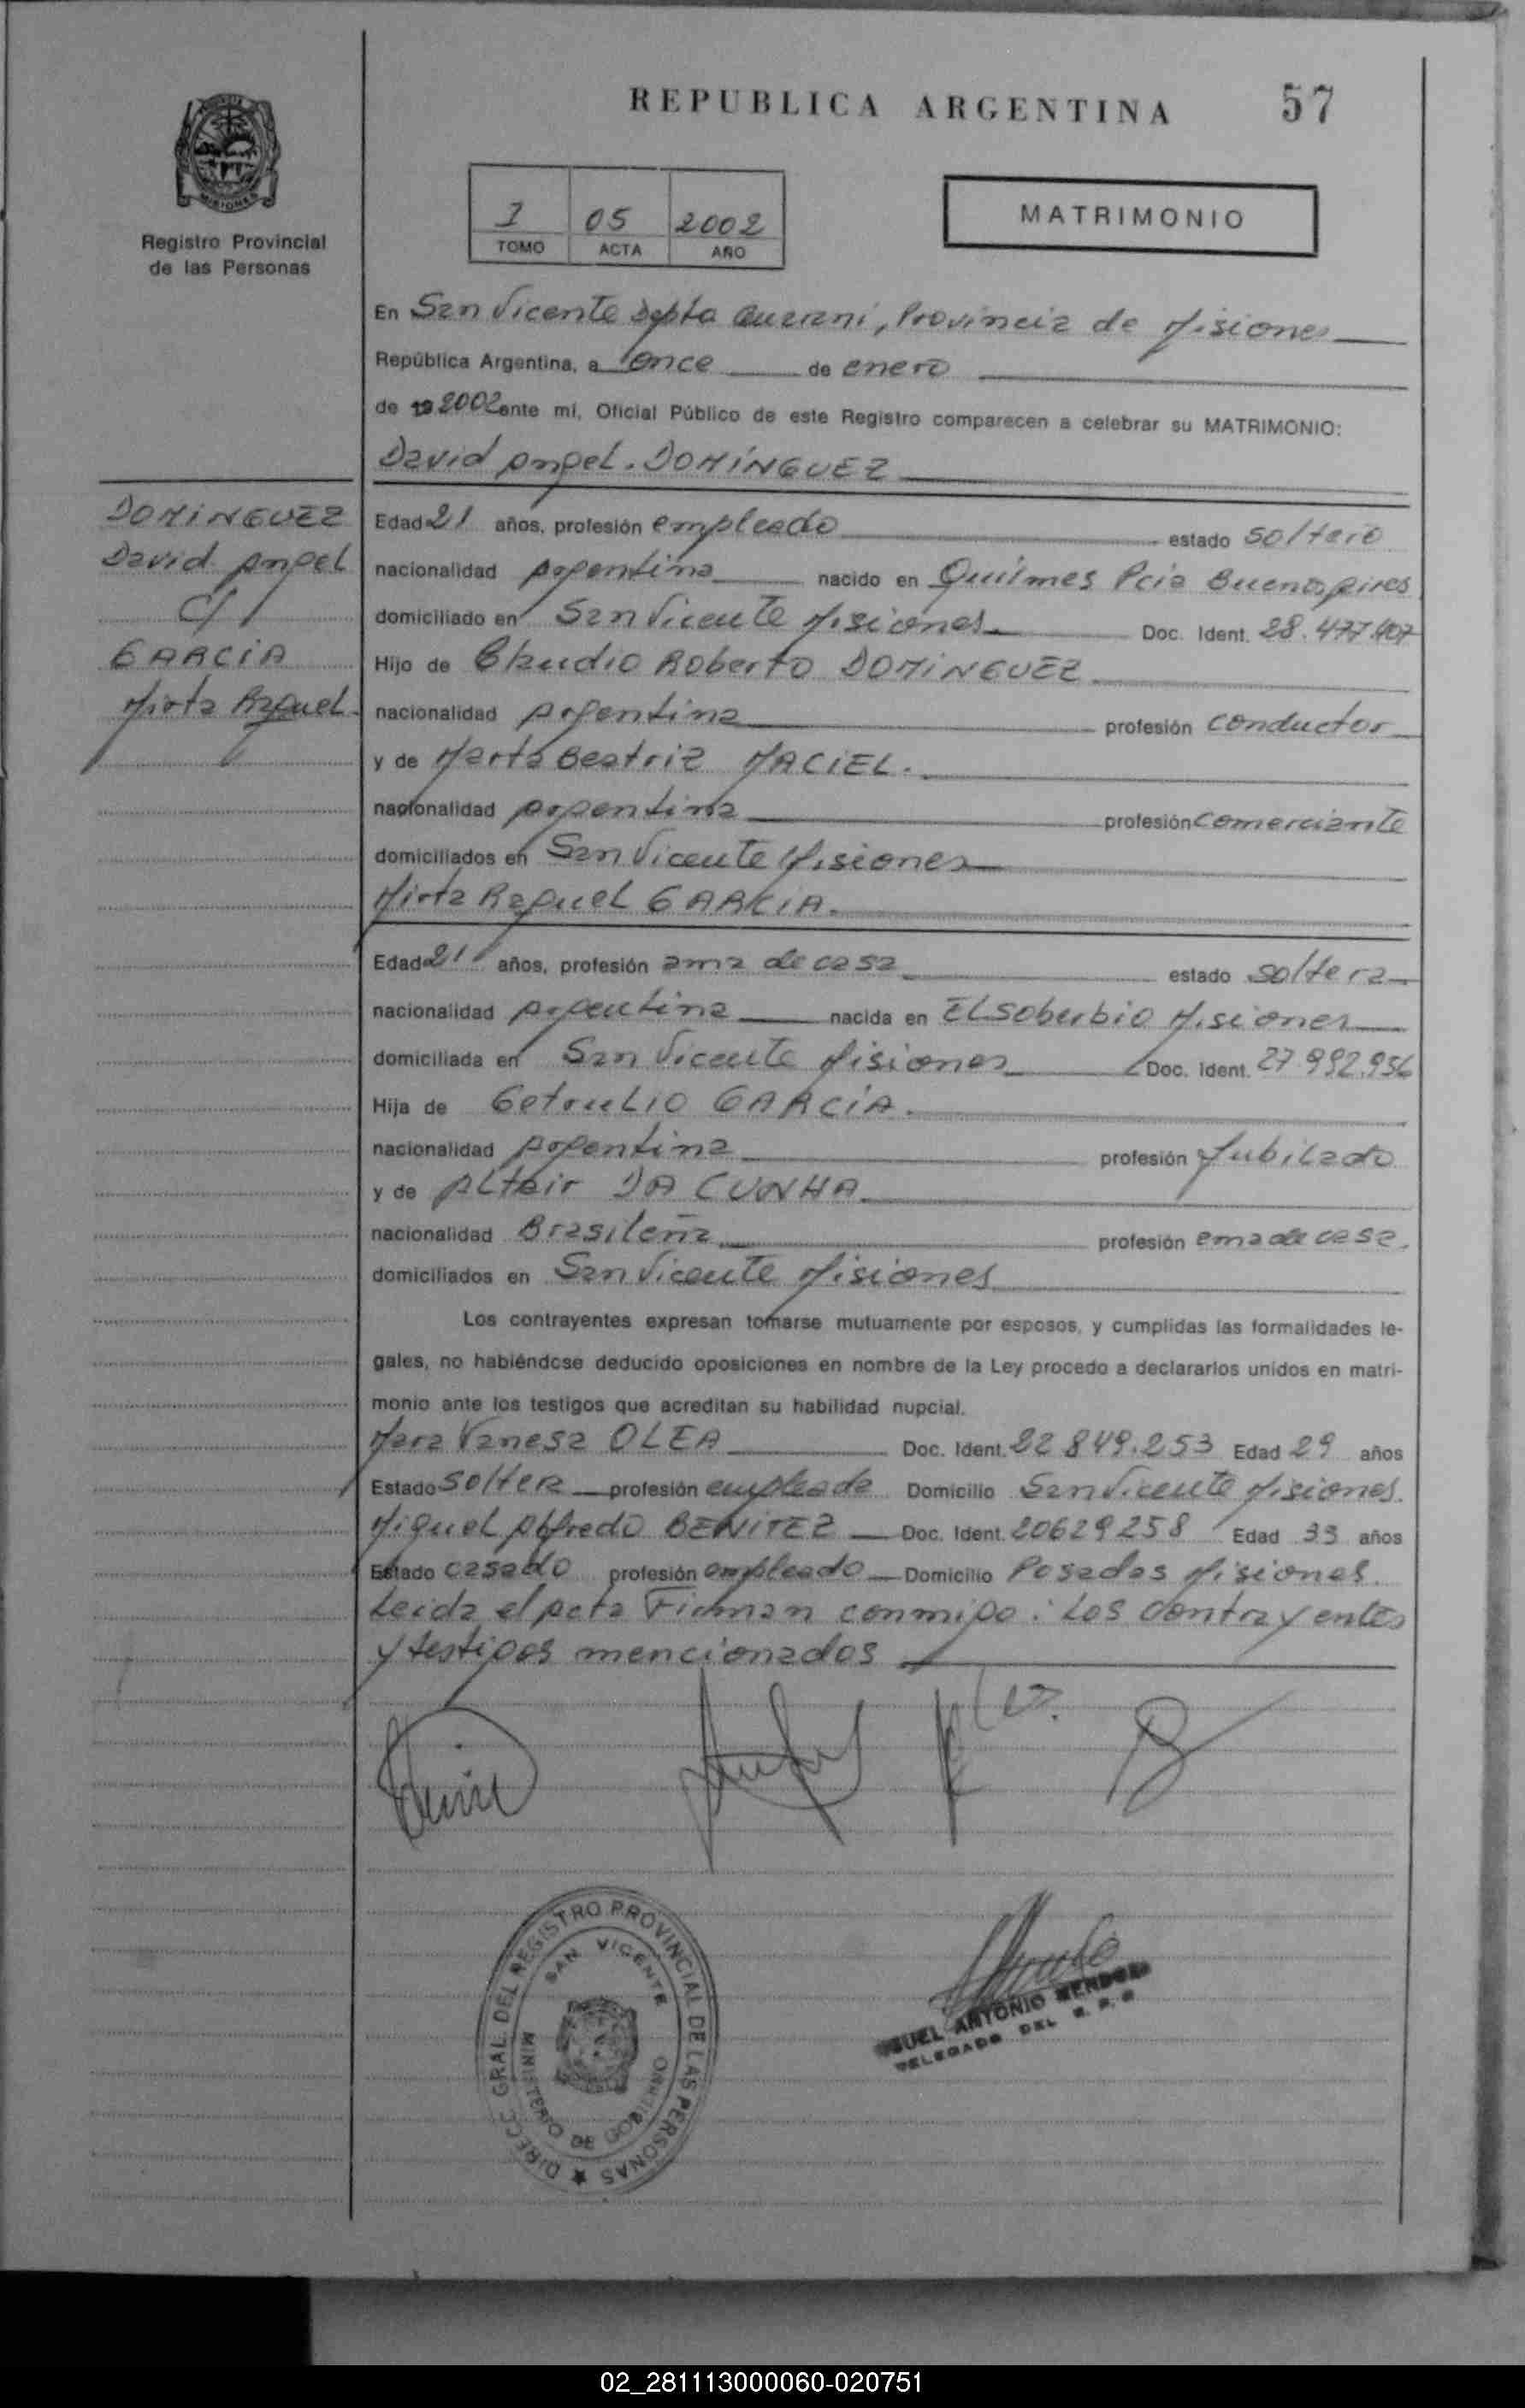 REPUBLICA ARGENTINA
57
MISIONES
Registro Provincial
de las Personas
I 05 2002
TOMO ACTA AÑO
MATRIMONIO
En San Vicente Depto Guarani, Provincia de Misiones
República Argentina, a once de enero
de 19 2002 ante mí, Oficial Público de este Registro comparecen a celebrar su MATRIMONIO:
David Angel. DOMÍNGUEZ
DOMINGUEZ
David Angel
c/
GARCIA
Mirta Raquel
Edad 21 años, profesión empleado estado soltero
nacionalidad Argentina nacido en Quilmes Pcia Buenos Aires
domiciliado en San Vicente Misiones Doc. Ident. 28.477.407
Hijo de Claudio Roberto DOMINGUEZ
nacionalidad Argentina profesión conductor
y de Marta Beatriz MACIEL.
nacionalidad Argentina profesión comerciante
domiciliados en San Vicente Misiones
Mirta Raquel GARCIA.
Edad 21 años, profesión ama de casa estado soltera
nacionalidad Argentina nacida en El Soberbio Misiones
domiciliada en San Vicente Misiones Doc. Ident. 27.992.956
Hija de Getoulio GARCIA.
nacionalidad Argentina profesión Jubilado
y de Altair DA CUNHA
nacionalidad Brasileña profesión ama de casa.
domiciliados en San Vicente Misiones
Los contrayentes expresan tomarse mutuamente por esposos, y cumplidas las formalidades le-
gales, no habiéndose deducido oposiciones en nombre de la Ley procedo a declararlos unidos en matri-
monio ante los testigos que acreditan su habilidad nupcial.
Mara Vanesa OLEA Doc. Ident. 22 849.253 Edad 29 años
Estado soltera profesión empleada Domicilio San Vicente Misiones.
Miguel Alfredo BENITEZ Doc. Ident. 20629258 Edad 33 años
Estado casado profesión empleado Domicilio Posadas Misiones.
Leida el Acta Firman conmigo: Los Contrayentes
y testigos mencionados
DIRECC GRAL DEL REGISTRO PROVINCIAL DE LAS PERSONAS
SAN VICENTE
MINISTERIO DE GOBIERNO
ANTONIO
DELEGADO DEL R. P. P
02_281113000060-020751